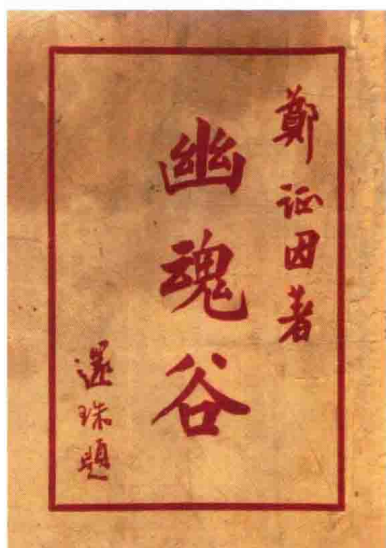 鄭证因著
幽魂谷
還珠題